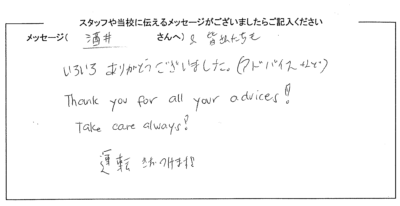 スタッフや当校に伝えるメッセージがございましたらご記入ください
メッセージ( 酒井 さんへ) & 皆さんたちも
いろいろ ありがとうございました。(アドバイスなど)
Thank you for all your advices!
Take care always!
運転 気をつけます